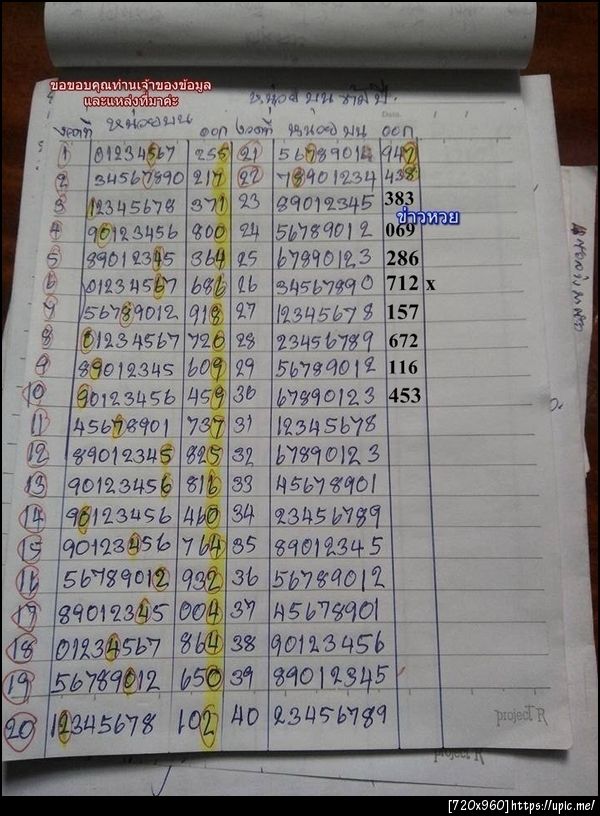 ขอขอบคุณท่านเจ้าของข้อมูล
และแหล่งที่มาค่ะ
หน่วยบน
Data
งวดที่ หน่วยบน ออก งวดที่ หน่วยบน ออก
1 01234567 255 21 56789014 947
2 34567890 217 22 78901234 438
3 12345678 371 23 89012345 383
ข่าวหวย
4 90123456 800 24 56789012 069
5 89012345 364 25 67890123 286
6 01234567 686 26 34567890 712 x
7 56789012 918 27 12345678 157
8 01234567 720 28 23456789 672
9 89012345 609 29 56789012 116
10 90123456 459 30 67890123 453
11 45678901 737 31 12345678
12 89012345 825 32 67890123
13 90123456 816 33 45678901
14 90123456 460 34 23456789
15 90123456 764 35 89012345
16 56789012 932 36 56789012
17 89012345 004 37 45678901
18 01234567 864 38 90123456
19 56789012 650 39 89012345
20 12345678 102 40 23456789
project R
project R
[720x960] https://upic.me/